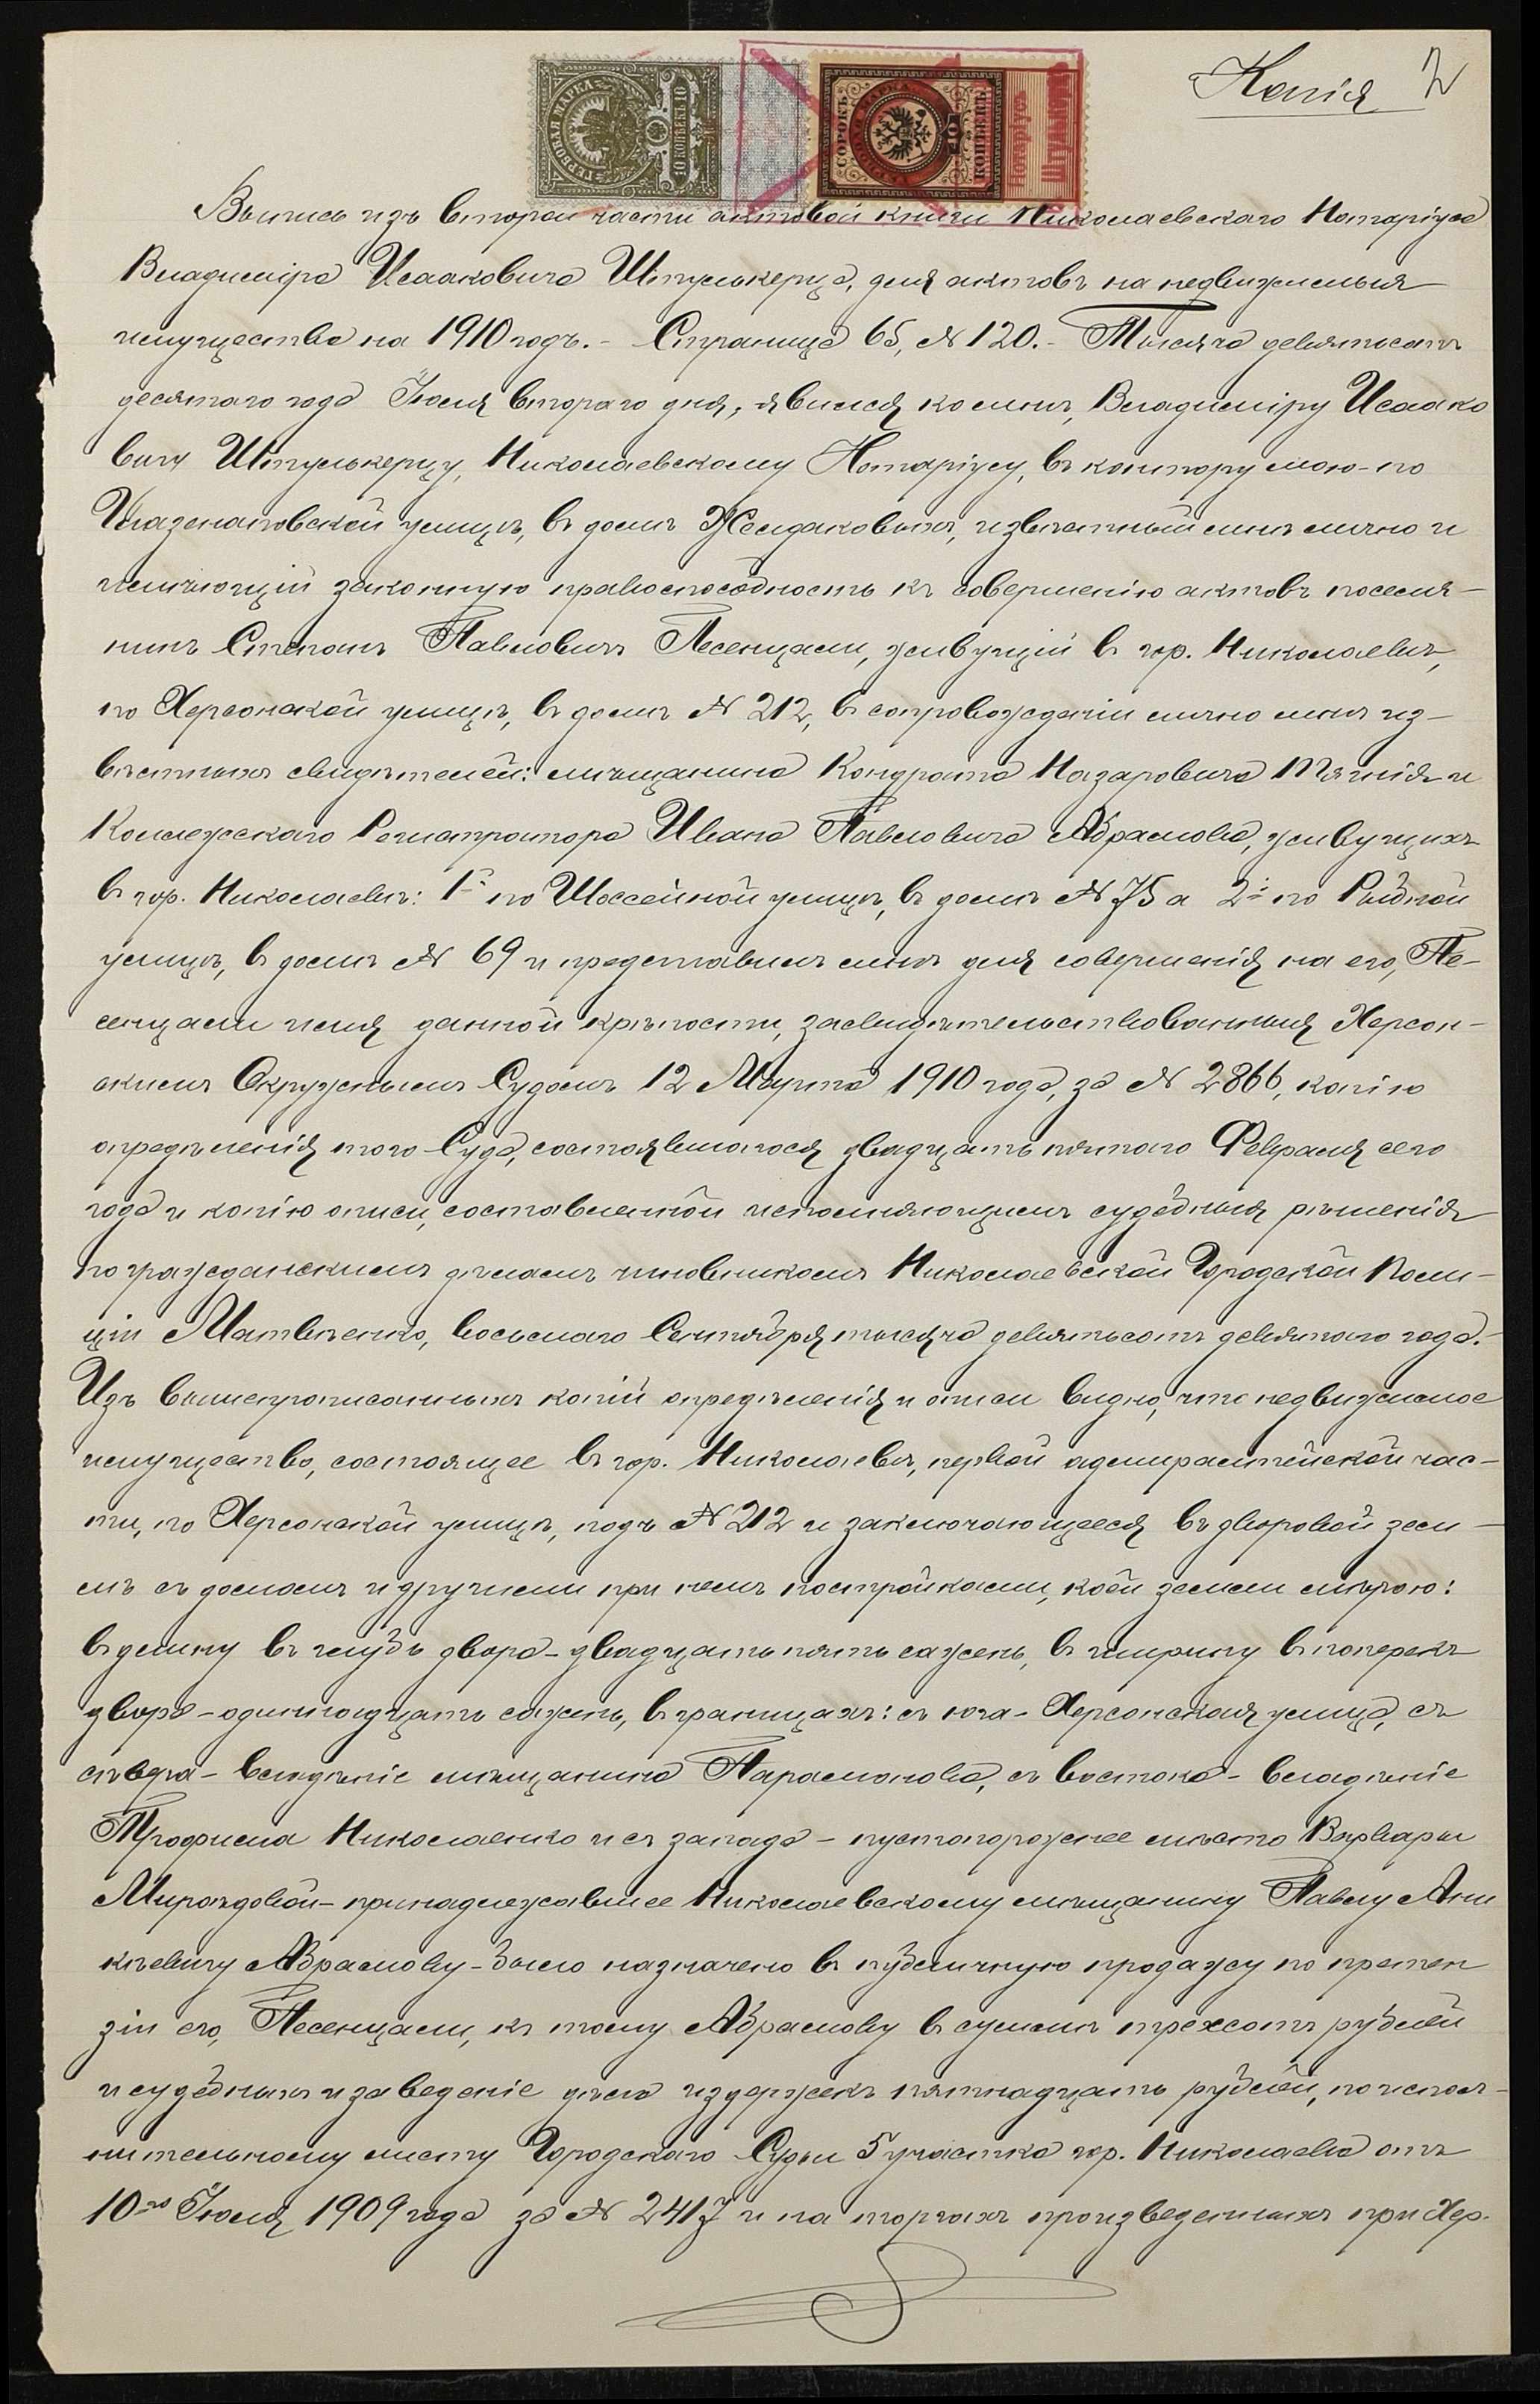 Копія 2
ГЕРБОВАЯ МАРКА
10 КОПѢЕКЪ 10
СОРОКЪ 40 КОПѢЕКЪ
Нотаріусъ
Выпись изъ второй части актовой книги Николаевскаго Нотаріуса
Владиміра Исааковича Штулькерца, для актовъ на недвижимыя
имущества на 1910 годъ.- Страница 65, № 120.- Тысяча девятьсотъ
десятаго года Іюля второго дня, явился ко мнѣ, Владиміру Исаако
вичу Штулькерцу, Николаевскому Нотаріусу, въ контору мою-по
Глазенаповской улицѣ, въ домѣ Желдаковыхъ, извѣстный мнѣ лично и
имѣющій законную правоспособность къ совершенію актовъ поселя-
нинъ Степанъ Павловичъ Песенцали, живущій въ гор. Николаевѣ,
по Херсонской улицѣ, въ домѣ № 212, въ сопровожденіи лично мнѣ из-
вѣстныхъ свидѣтелей: мѣщанина Кондрата Назаровича Тягнія и
Коллежскаго Регистратора Ивана Павловича Абрамова, живущихъ
въ гор. Николаевѣ: 1й по Шоссейной улицѣ, въ домѣ № 75 а 2й по Рыбной
улицѣ, въ домѣ № 69 и представилъ мнѣ для совершенія на его, Пе-
сенцали имя данной крѣпости, засвидѣтельствованныя Херсон-
скимъ Окружнымъ Судомъ 12 Марта 1910 года, за № 2866, копію
опредѣленія того Суда, состоявшагося двадцать пятого Февраля сего
года и копію описи, составленной исполняющимъ судебныя рѣшенія
по гражданскимъ дѣламъ чиновникомъ Николаевской Городской Поли-
ціи Матвѣенко, восьмого Сентября тысяча девятьсотъ девятаго года.-
Изъ вышепрописанныхъ копій опредѣленія и описи видно, что недвижимое
имущество, состоящее въ гор. Николаевѣ, первой адмиралтейской час-
ти, по Херсонской улицѣ, подъ № 212 и заключающееся въ дворовой зем-
лѣ съ домомъ и другими при немъ постройками, коей земли мѣрою:
въ длину въ глубь двора-двадцать пять сажень, въ ширину въ поперекъ
двора-одиннадцать сажень, въ границахъ: съ юга-Херсонская улица, съ
сѣвера-владѣніе мѣщанина Парамонова, съ востока-владѣніе
Трофима Николаенко и съ запада-пустопорожнее мѣсто Варвары
Мироздовой-принадлежавшее Николаевскому мѣщанину Павлу Ани
кѣевичу Абрамову-было назначено въ публичную продажу по претен
зіи его, Песенцали, къ тому Абрамову въ суммѣ трехсотъ рублей
и судебныхъ и за веденіе дѣла издержекъ пятнадцать рублей, по испол-
нительному листу Городскаго Судьи 5 участка гор. Николаева отъ
10го Іюля 1909 года за № 2417 и на торгахъ произведенныхъ при Хер-